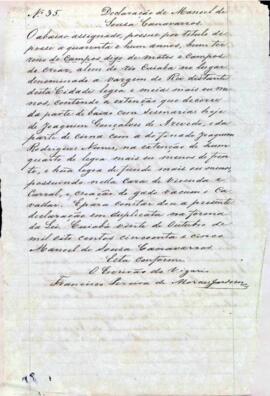 Nº 35. Declaração de Manoel de
Sousa Canavarros.
O abaixo assignado, possue por titulo de
posse a quarenta e hum annos, hum ter
reno de Campos digo de Mattos e Campos
de Criar, alem do rio Cuiabá no lugar
denominado a vargem do Rio distante
desta Cidade legoa e meia mais ou me
nos, contendo a extenção que decorre
da parte de baixo com desmarias hoje
de Joaquim Gonçalves de Azevedo, e da
parte de cima com a do finado Joaquim
Rodrigues Nunes, na extenção de hum
quarto de legoa mais ou menos de fren
te, e húa legoa de fundo mais ou menos,
possuindo nella Caza de vivenda e
Curral, e criação de gado vacum e Ca
vallar. E para constar dou a presente
declaração em duplicata na forma
da Lei. Cuiabá vinte de Outubro de
mil oito centos cincoenta e cinco
Manoel de Sousa Canavarros
Esta Conforme
O Escrivão do Vigario
Francisco Pereira de Moraes Jardim